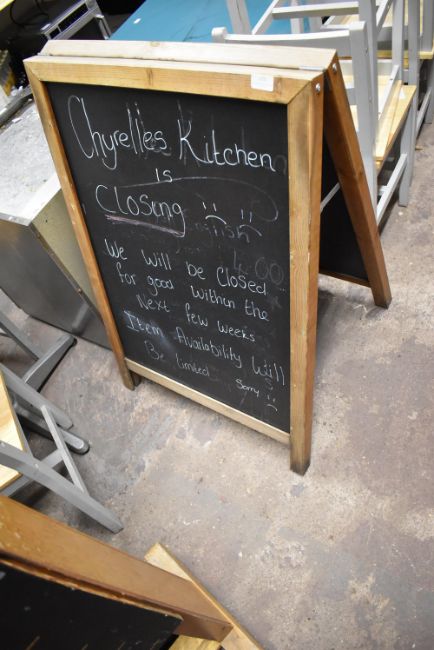 Chyrelles Kitchen
is
Closing :( :(
We will be Closed
for good within the
Next few weeks
Item Availability Will
Be limited Sorry :(